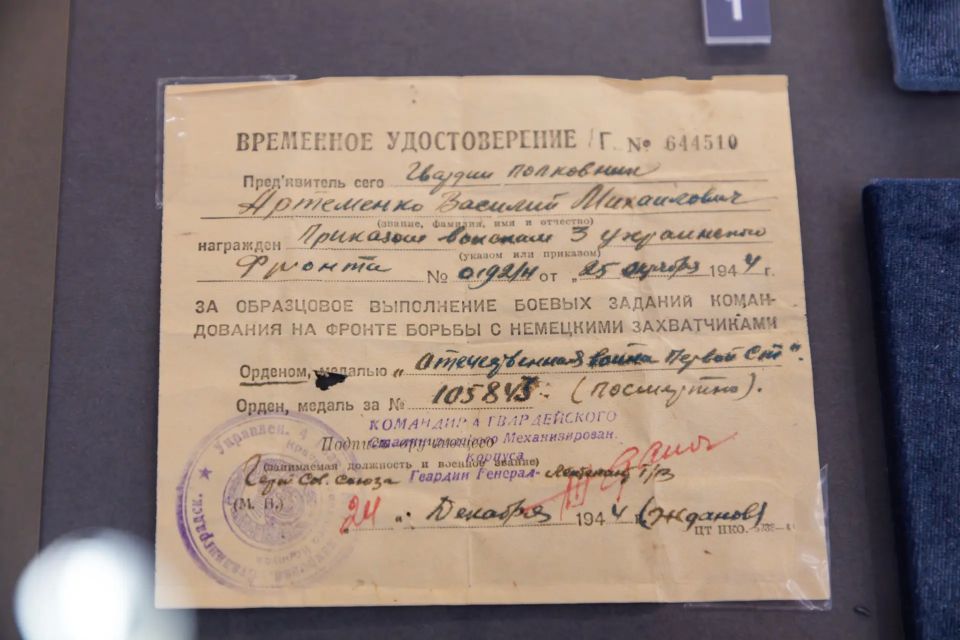 ВРЕМЕННОЕ УДОСТОВЕРЕНИЕ Г. № 644510
Пред'явитель сего Гвардии полковник
Артеменко Василий Михайлович
(звание, фамилия, имя и отчество)
награжден Приказом войскам 3 украинского
(указом или приказом)
Фронта № 0192/н от „25 октября 1944 г.
ЗА ОБРАЗЦОВОЕ ВЫПОЛНЕНИЕ БОЕВЫХ ЗАДАНИЙ КОМАН-
ДОВАНИЯ НА ФРОНТЕ БОРЬБЫ С НЕМЕЦКИМИ ЗАХВАТЧИКАМИ
Орденом, медалью „Отечественная война Первой ст".
Орден, медаль за № 105843 (Посмертно).
КОМАНДИРА ГВАРДЕЙСКОГО
Подпись вручающего
Сталинградского Механизирован.
Корпуса
(занимаемая должность и военное звание)
Гвардии Генерал- Лейтенант Т/В
Герой Сов. Союза
(М. П.)
24 „ Декабря 1944 (Жданов)
ЦТ НКО.
Управлен. 4
Сталинградск.